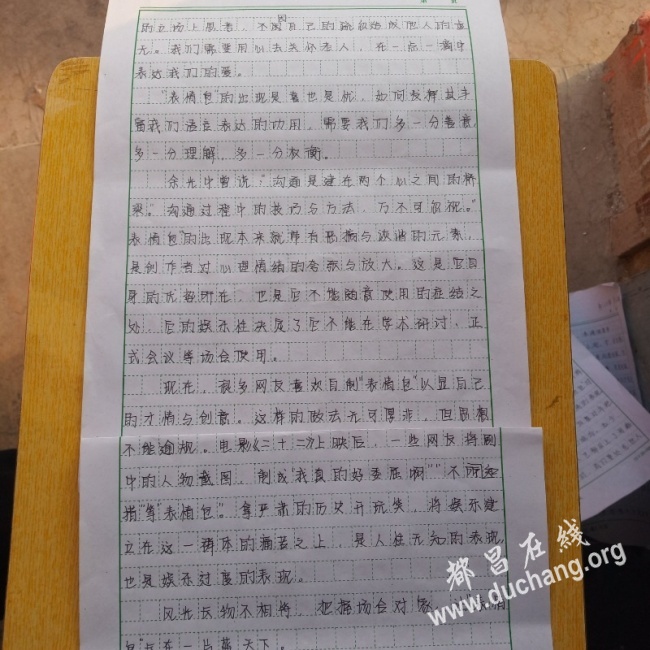 的立场上思考,不因自己的 成他人的
无。我们需要用心去关怀老人,在一点一滴中
表达我们的爱。
"表情包"的出现是喜也是忧,如何发挥其丰
富我们语言表达的功用,需要我们多一分善意,
多一分理解,多一分权衡。
余光中曾说:"沟通是建在两个心之间的桥
梁。"沟通过程中的技巧与方法,万不可忽视。"
表情包"的出现本来就带有恶搞与诙谐的元素,
是创作者对心理情绪的夸张与放大。这是它自
身的优势所在,也是它不能随意使用的症结之
处,它的娱乐性决定了它不能在学术研讨,正
式会议等场合使用。
现在,很多网友喜欢自制"表情包"以显自己
的才情与创意。这样的做法无可厚非,但
不能逾规。电影《二十二》上映后,一些网友将剧
中的人物截图,制成"我真的好委屈啊""不
措"等"表情包"。拿严肃的历史开玩笑,将娱乐建
立在这一群体的痛苦之上,是人性无知的表现,
也是娱乐过度的表现。
风光长物不相待,把握场合对
包"
都昌在线
www.duchang.org